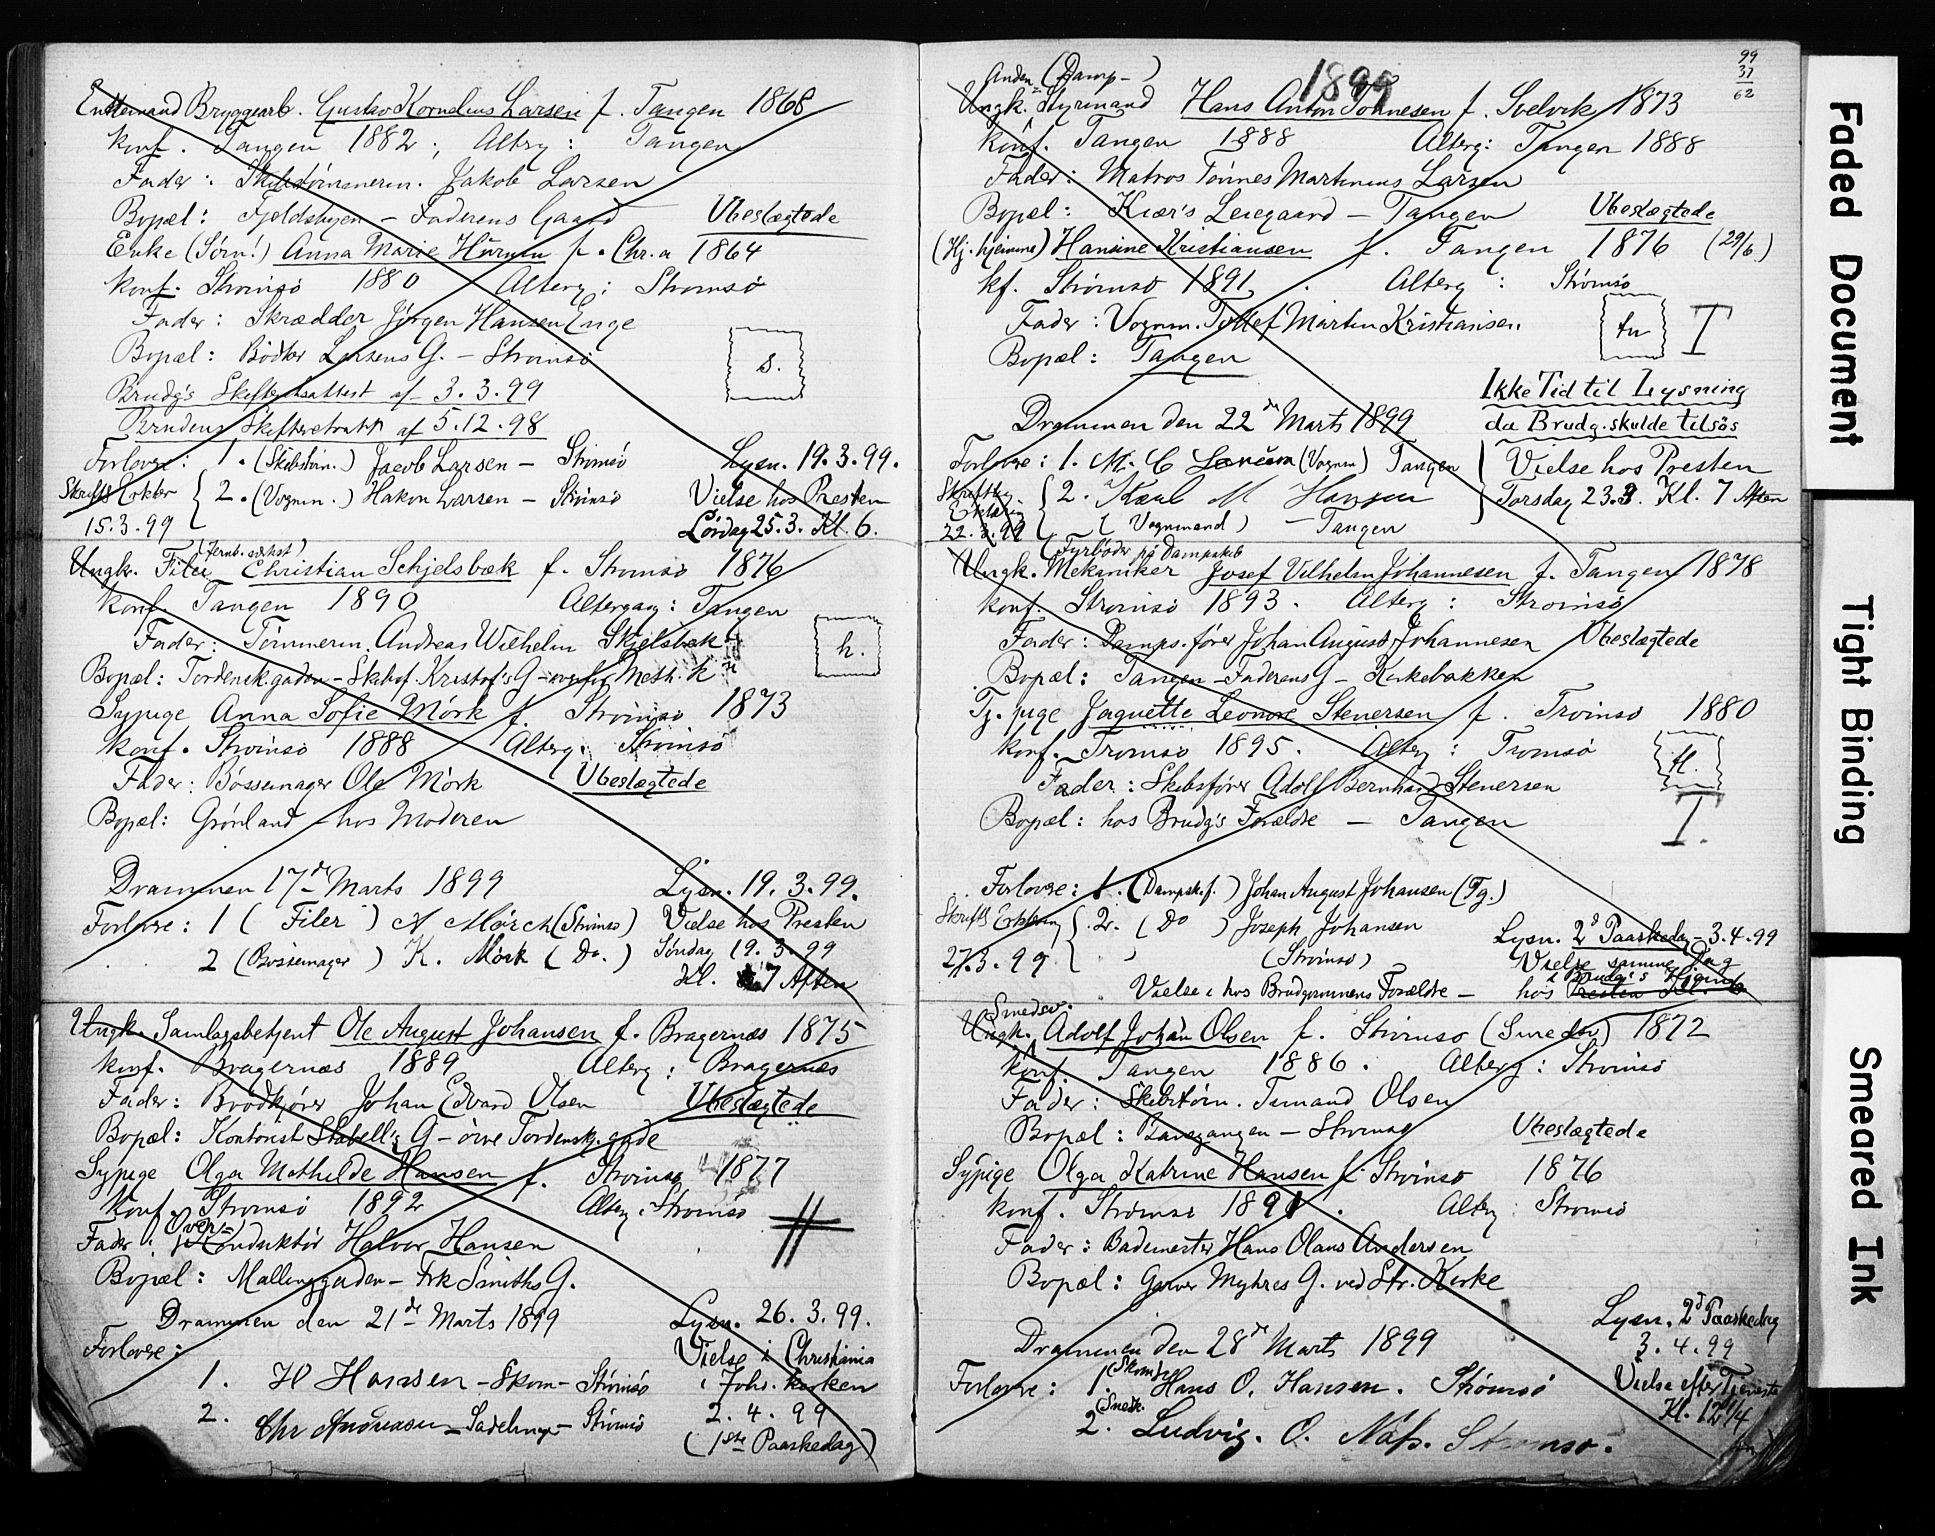 Enkemand Bryggearb. Gustav Kornelius Larsen f. Tangen 1868
Konf. Tangen 1882; Alterg: Tangen
Fader: Skibstømmerm. Jakob Larsen
Bopæl: Fjeldsbyen – Faderens Gaard Ubeslægtede
Enke (Sørn!) Anna Marie f. Chr.a 1864
Konf. Strømsø 1880 Alterg: Strømsø
Fader: Skrædder Jörgen Hansen Enge
Bopæl: Bödker Larsens G. – Strømsø
s.
Brudg's Skifteretsattest af 3.3.99
Brudens Skifteretsatt af 5.12.98
Forlovere: 1. (Skibstöm.) Jacob Larsen – Strömsö Lysn. 19.3.99.
Skriftl. Erklær 2. (Vognm.) Hakon Larsen – Strömsö Vielse hos Presten
15.3.99 Lørdag 25.3. Kl. 6.
(Jernb. værkst)
Ungk. Filer Christian Schjelsbæk f. Strømsø 1876
Konf. Tangen 1890 Altergang: Tangen
Fader: Tömmerm. Andreas Wilhelm Skjelsbæk
h.
Bopæl: Tordenskgaden – Skibsf. Kristof's G – ovenfor Meth. K
Sypige Anna Sofie Mörk f. Strömsø 1873
Konf. Strømsø 1888 Alterg: Strømsø
Fader: Bössemager Ole Mörk Ubeslægtede
Bopæl: Grönland hos Moderen
Drammen 17de Marts 1899 Lysn. 19.3.99.
Forlovere: 1 (Filer) A Mörch (Strömsö) Vielse hos Presten
2 (Bössemager) K. Mörk (Do.) Søndag 19.3.99
Kl. 7 Aften
Ungk. Samlagsbetjent Ole August Johansen f. Bragernæs 1875
Konf. Bragernæs 1889 Alterg: Bragernæs
Fader: Brödkjører Johan Edvard Olsen Ubeslægtede
Bopæl: Kontorist Stabell's G – övre Tordenskj. gade
Sypige Olga Mathilde Hansen f. Strømsø 1877
Konf. Strømsø 1892 Alterg. Strømsö
Over-
Fader: Konduktör Halvor Hansen
Bopæl: Mallinggaden – Frk Smiths G.
Drammen den 21de Marts 1899 Lysn. 26.3.99.
Forlovere: Vielse i Christiania
1. H Hansen – Skom – Strömsö i Johs. kirken
2. Chr Andreasen – Sadelmager – Strömsö 2.4.99
(1ste Paaskedag)
1899
99
37
62
Anden (Damp-)
Ungk. Styrmand Hans Anton Tönnesen f. Svelvik 1873
Konf. Tangen 1888 Alterg: Tangen 1888
Fader: Matros Tönnes Martinius Larsen
Bopæl: Kiær's Leiegaard – Tangen Ubeslægtede
(Hj. hjemme) Hansine Kristiansen f. Tangen 1876 (29/6)
kf. Strømsø 1891. Alterg: Strømsö
Fader: Vognm. Tollef Martin Kristiansen.
tn I
Bopæl: Tangen
Ikke Tid til Lysning
Drammen den 22de Marts 1899 da Brudg. skulde tilsös
Forlovere: 1. M. C (Vognm) Tangen Vielse hos Presten
Skriftlig 2. Karl M Hansen Torsdag 23.3. Kl. 7 Aften
Erklæring (Vognmand) – Tangen
22.3.99
(Fyrböder på Dampskib
Ungk. Mekaniker Josef Vilhelm Johannesen f. Tangen 1878
Konf. Strømsø 1893. Alterg: Strømsø
Fader: Damps. förer Johan August Johannesen Ubeslægtede
Bopæl: Tangen – Faderens G – Kirkebakken
Tj. pige Jaquette Leonore Stenersen f. Tromsø 1880
Konf. Tromsø 1895. Alterg: Tromsö
Fader: Skibsförer Adolf Bernhard Stenersen
Bopæl: hos Brudg's Forældre – Tangen
I.
Forlovere: 1. (Dampsk.f.) Johan August Johansen (Tg.)
Skriftl Erklæring 2. (Do) Joseph Johansen Lysn. 2d Paaskedag – 3.4.99
27.3.99 (Strömsö) Vielse samme Dag
i Brudg's Hjem
Vielse i hos Brudgommens Forældre – hos Presten Kl. 6
Smedsv.
Ungk. Adolf Johan Olsen f. Strømsø (Smedsv) 1872
Konf. Tangen 1886. Alterg: Strömsö
Fader: Skibstöm. Olsen
Bopæl: – Strømsø Ubeslægtede
Sypige Olga Katrine Hansen f. Strømsø 1876
Konf. Strømsø 1891. Alterg: Strømsö
Fader: Bademester Hans Olaus Andersen
Bopæl: Garver Myhres G. ved Str. Kirke
Lysn. 2d Paaskedag
Drammen den 28de Marts 1899 3.4.99
Forlovere: 1. (Skom) Hans O. Hansen. Strömsö Vielse efter Tjeneste
Kl. 12 1/4
2. (Smed. Ludvig. O. Næss. Strømsø.
Faded Document
Tight Binding
Smeared Ink